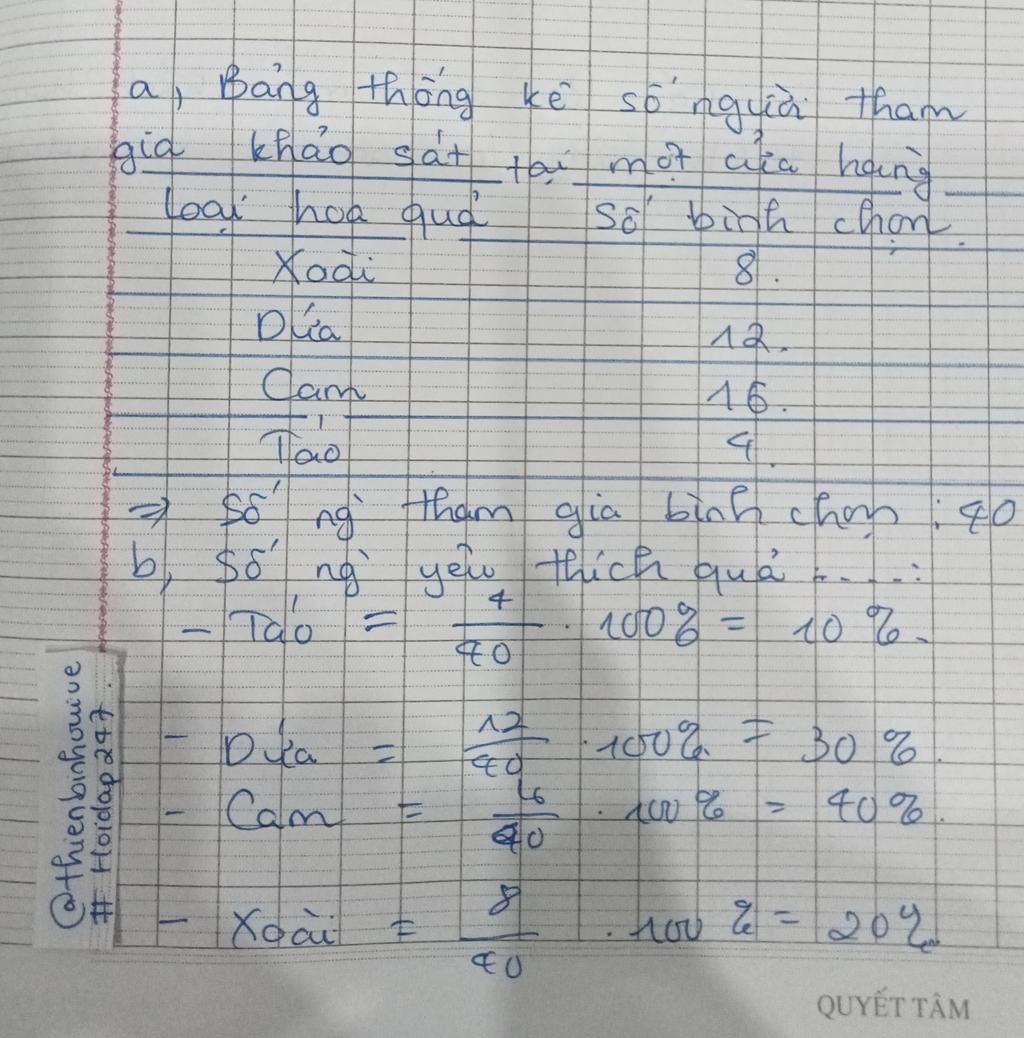 a, Bảng thống kê số người tham
gia khảo sát tại một cửa hàng
loại hoa quả số bình chọn.
Xoài 8.
Dứa 12.
Cam 16.
Táo 4.
=> Số ng` tham gia bình chọn : 40
b, Số ng` yêu thích quả ....:
- Táo = 4/40 . 100% = 10%.
- Dứa = 12/40 . 100% = 30%.
- Cam = 16/40 . 100% = 40%.
- Xoài = 8/40 . 100% = 20%
@thienbinhouive
# Hoidap247.
QUYẾT TÂM